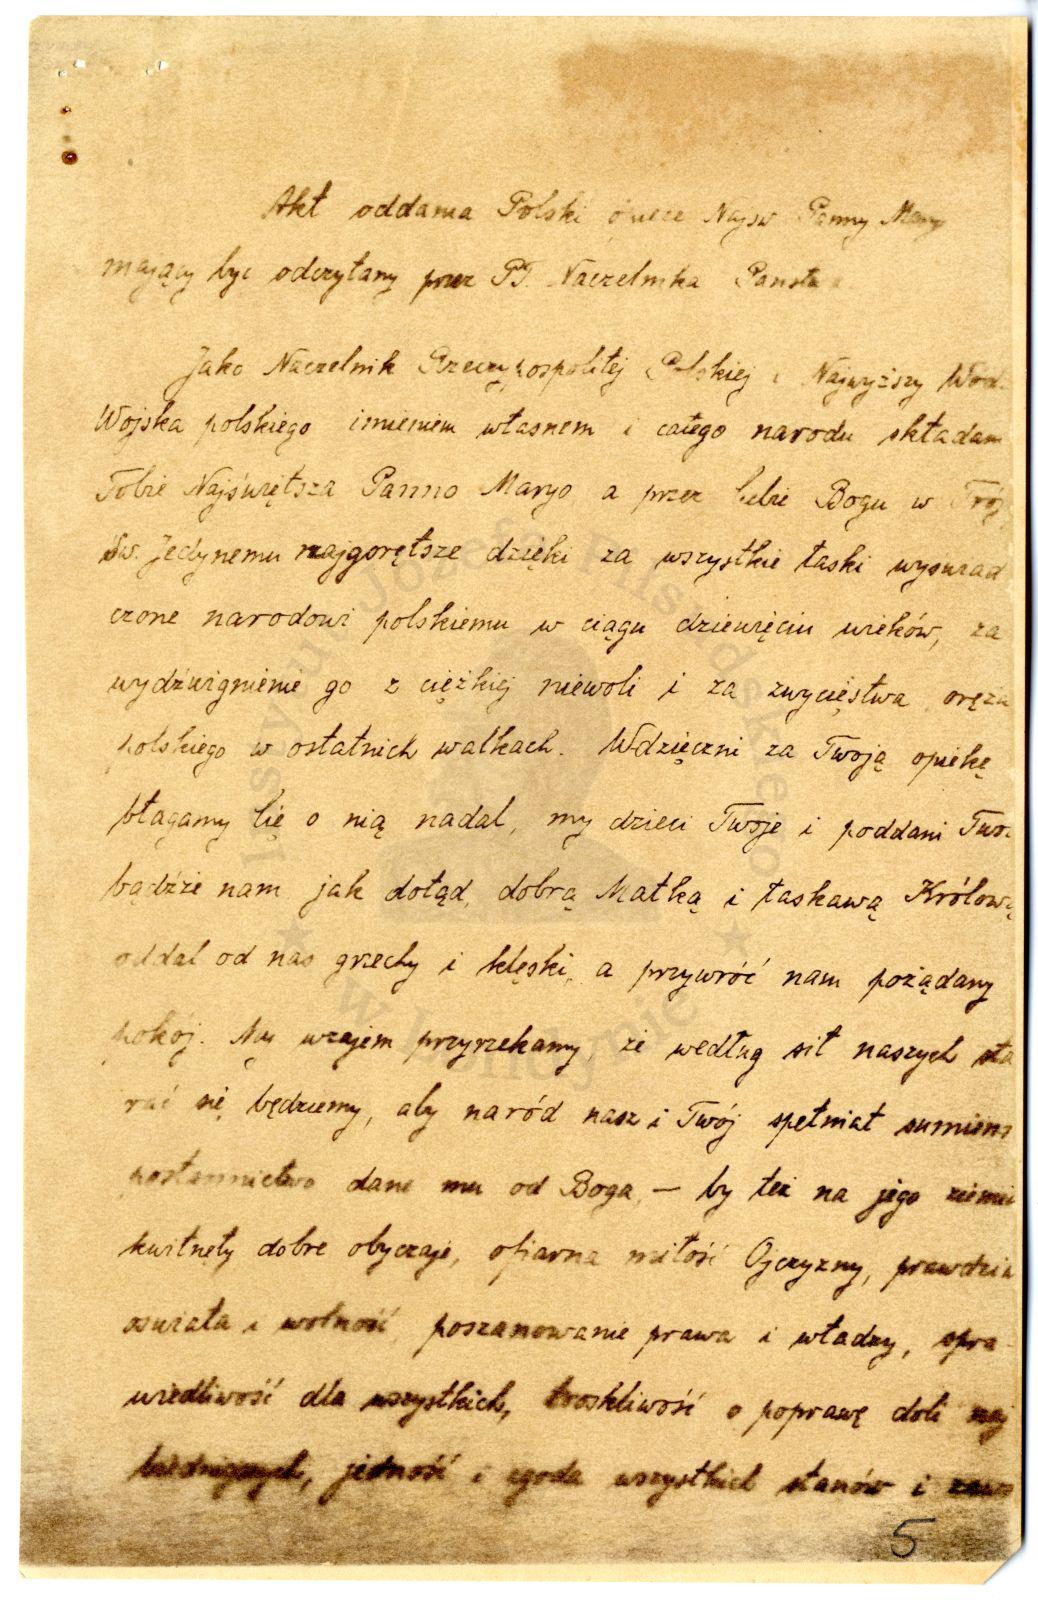 Akt oddania Polski opiece Najsw Panny Mary
mający byc odczytany przez PJ. Naczelnika Panstwa
Jako Naczelnik Rzeczypospolitej Polskiej i Najwyższy Wod
Wojska polskiego imieniem własnem i całego narodu składam
Tobie Najświętsza Panno Maryo a przez Ciebie Bogu w Trój
Św. Jedynemu najgorętsze dzięki za wszystkie łaski wyswiad
czone narodowi polskiemu w ciągu dziewięciu wieków, za
wydźwignienie go z ciężkiej niewoli i za zwycięstwa oręża
polskiego w ostatnich walkach. Wdzięczni za Twoją opiekę
błagamy Cię o nią nadal, my dzieci Twoje i poddani Twoi
bądźże nam jak dotąd, dobrą Matką i łaskawą Królową
oddal od nas grzechy i klęski, a przywróć nam pożądany
pokój. My wzajem przyrzekamy, że według sił naszych sta
rać się będziemy, aby naród nasz i Twój spełniał sumien
posłannictwo dane mu od Boga, — by też na jego ziemi
kwitnęły dobre obyczaje, ofiarna miłość Ojczyzny, prawdziw
oswiata i wolność, poszanowanie prawa i władzy, spra
wiedliwość dla wszystkich, troskliwość o poprawę doli naj
biedniejszych, jedność i zgoda wszystkich stanów i zawo
5
Instytut Józefa Piłsudskiego
w Londynie